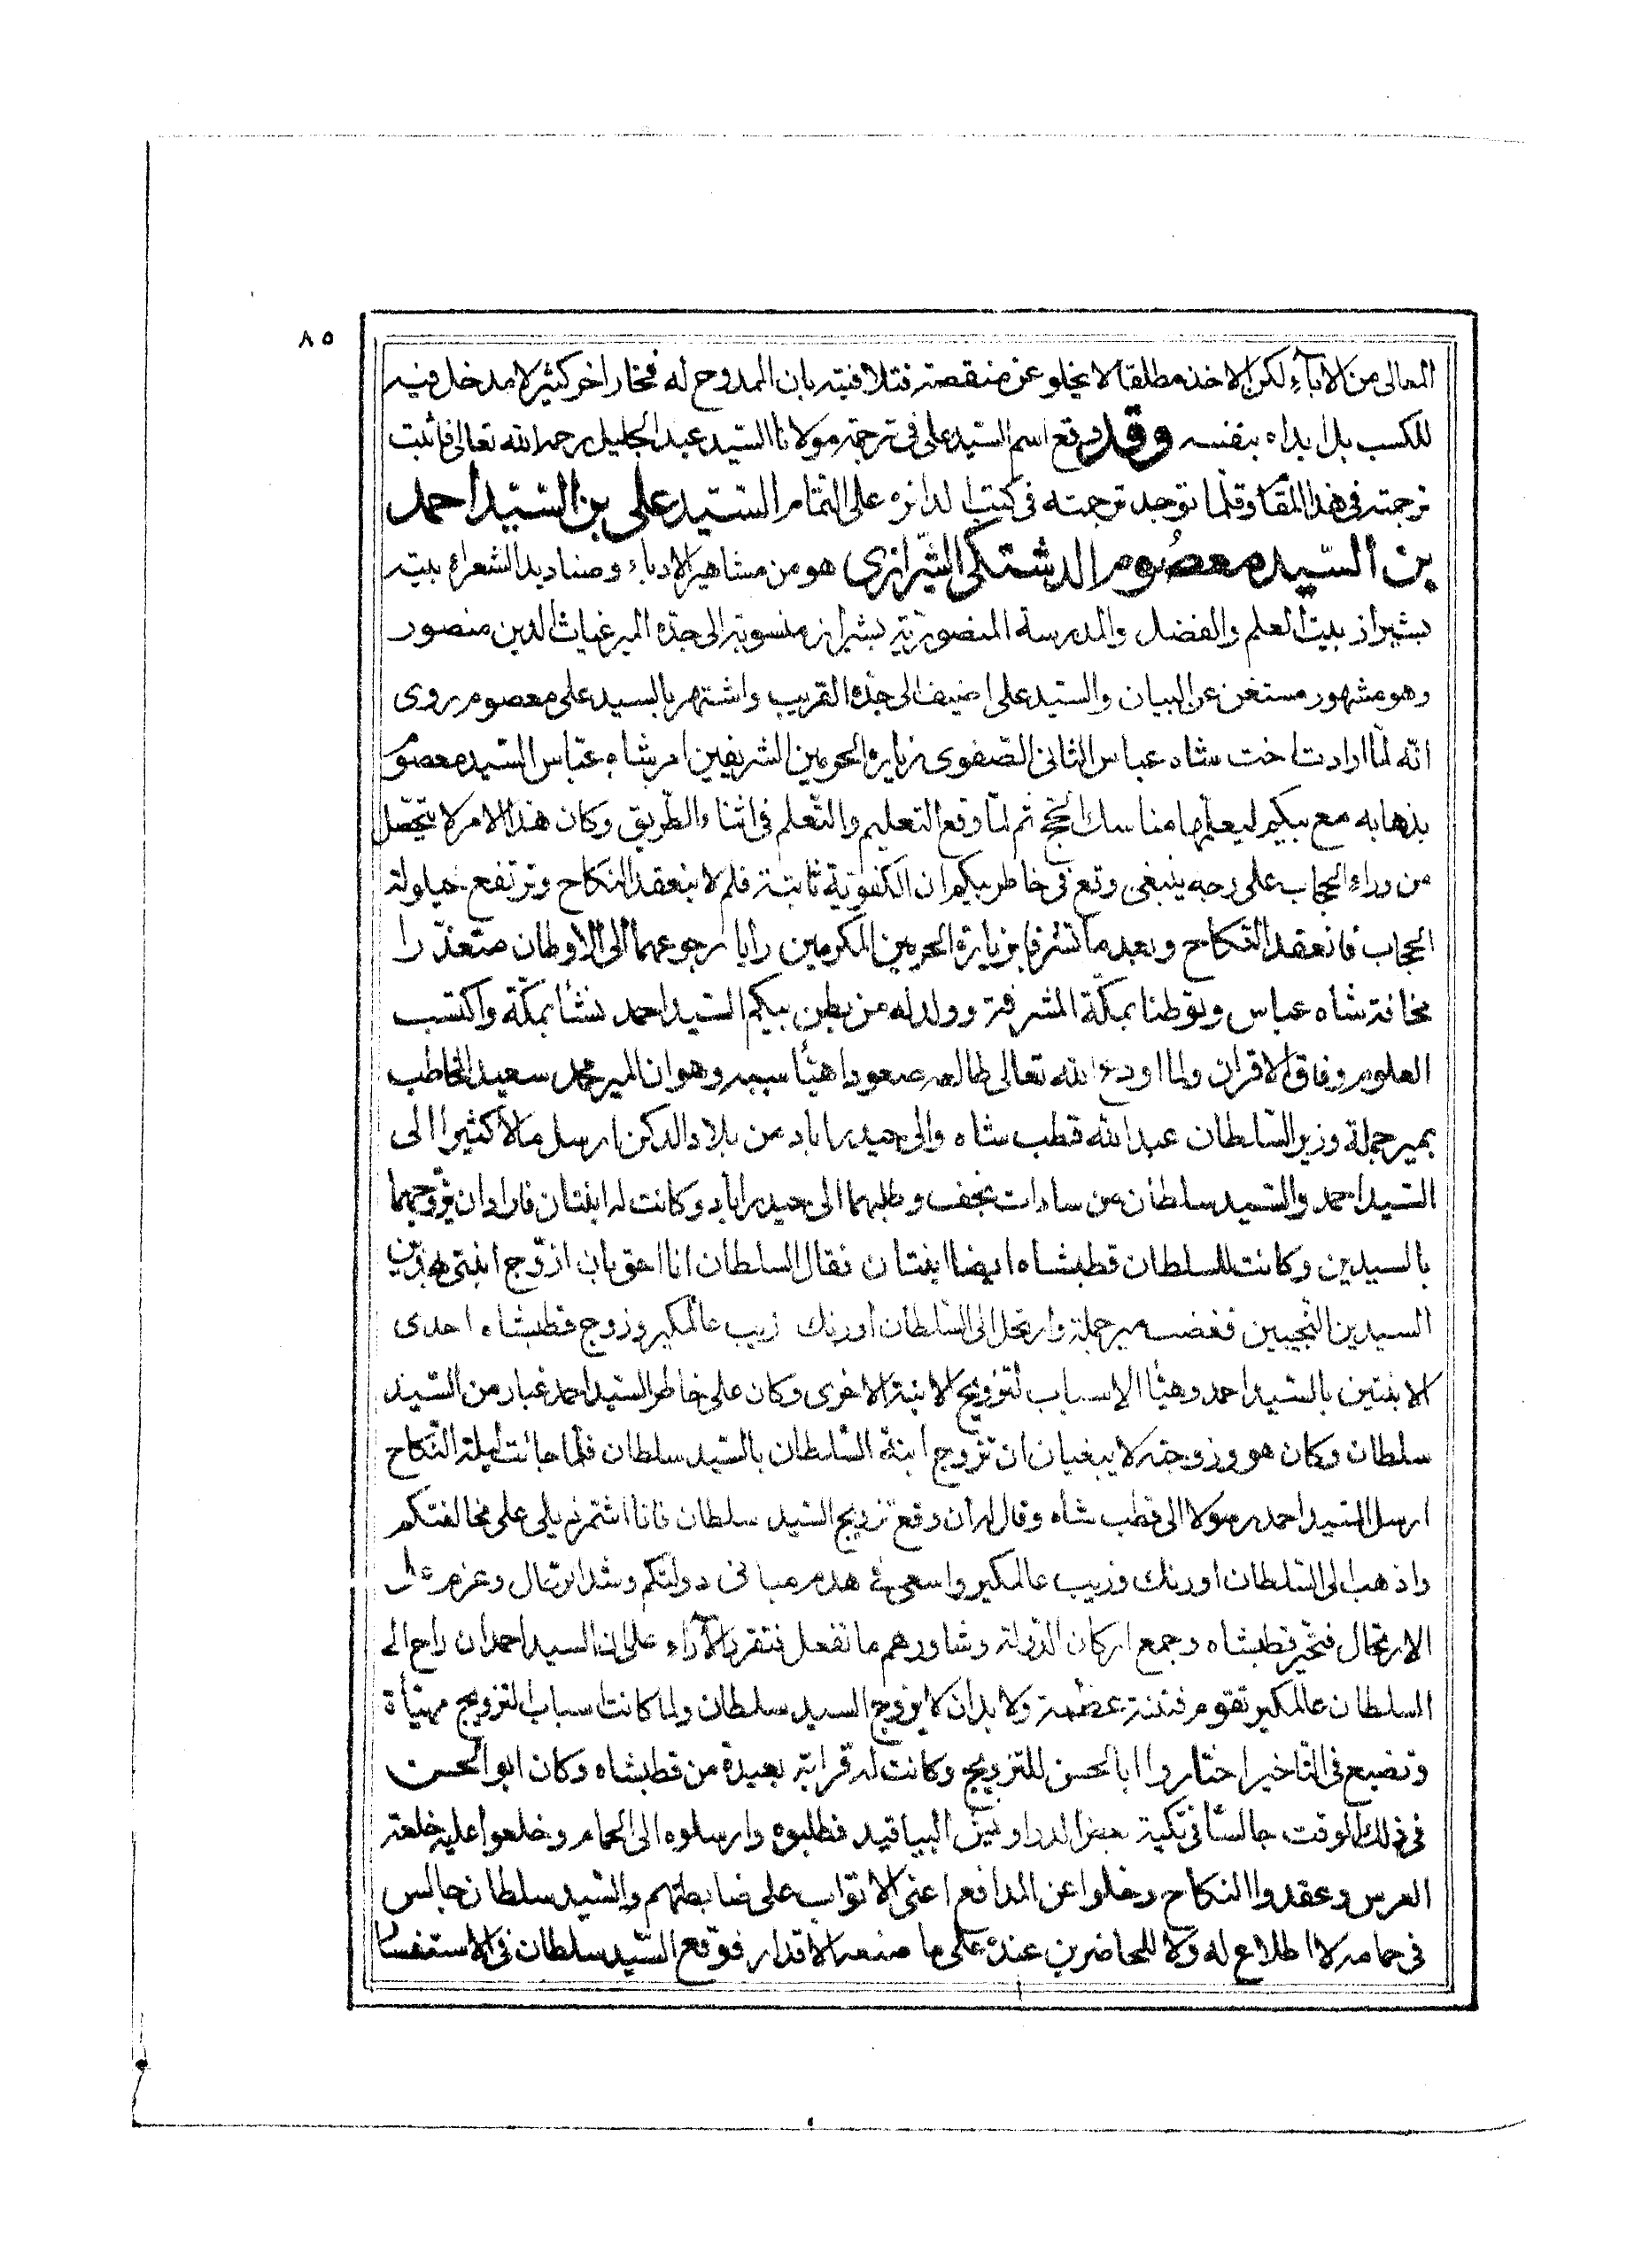 ٨٥
المعالى من الاباء لكن الاخذ مطلقا لا يخلو عن منقصة فتلافيته بان الممدوح له فخار اخر كثير لا مدخل فيه
للكسب بل ابداه بنفسه وقد وقع اسم السيد على فى ترجمة مولانا السيد عبد الجليل رحمه الله تعالى فاثبت
ترجمته فى هذا المقام وقلما توجد ترجمته فى كتب الدائره على التمام السيد على بن السيد احمد
بن السيد معصوم الدشتكى الشيرازى هو من مشاهير الادباء وصناديد الشعراء بيته
بشيراز بيت العلم والفضل والمدرسة المنصورية بشيراز منسوبة الى جده المير غياث الدين منصور
وهو مشهور مستغن عن البيان والسيد على اضيف الى جده القريب واشتهر بالسيد على معصوم روى
انه لما ارادت اخت شاه عباس الثانى الصفوى زيارة الحرمين الشريفين امر شاه عباس السيد معصوم
بذهابه مع بيكم ليعلمها مناسك الحج ثم لما وقع التعليم والتعلم فى اثناء الطريق وكان هذا الامر لا يتحصل
من وراء الحجاب على وجه ينبغى وقع فى خاطر بيكم ان الكفوية ثابتة فلم لا ينعقد النكاح وترتفع حيلولة
الحجاب فانعقد النكاح وبعد ما تشرفا بزيارة الحرمين المكرمين رايا رجوعهما الى الاوطان متعذرا
مخافة شاه عباس وتوطنا بمكة المشرفة وولد له من بطن بيكم السيد احمد نشأ بمكة واكتسب
العلوم وفاق الاقران ولما اودع الله تعالى طالعه صعودا هيأ سببه وهو ان المير محمد سعيد المخاطب
بمير جملة وزير السلطان عبد الله قطب شاه والى حيدراباد من بلاد الدكن ارسل مالا كثيرا الى
السيد احمد والسيد سلطان من سادات نجف وطلبهما الى حيدراباد وكانت له ابنتان فاراد ان يزوجهما
بالسيدين وكانت للسلطان قطبشاه ايضا ابنتان فقال السلطان انا احق بان ازوج ابنتى بهذين
السيدين النجيبين فغضب مير جملة وارتحل الى السلطان اورنك زيب عالمكير وزوج قطبشاه احدى
الابنتين بالسيد احمد وهيأ الاسباب لتزويج الابنة الاخرى وكان على خاطر السيد احمد غبار من السيد
سلطان وكان هو وزوجته لا يبغيان ان تزوج ابنة السلطان بالسيد سلطان فلما جائت ليلة النكاح
ارسل السيد احمد رسولا الى قطب شاه وقال له ان وقع تزويج السيد سلطان فانا اشتمر ذيلى على مخالفتكم
واذهب الى السلطان اورنك وزيب عالمكير واسعى فى هدم مبانى دولتكم وشد الرحال وعزم على
الارتحال فتحير قطبشاه وجمع اركان الدولة وشاورهم ما نفعل فتقرر الآراء على ان السيد احمد ان راح الى
السلطان عالمكير تقوم فتنة عظيمة ولا بد ان لا يزوج السيد سلطان ولما كانت اسباب التزويج مهيأة
وتضيع فى التاخير اختاروا ابا الحسن للتزويج وكانت له قرابة بعيدة من قطبشاه وكان ابو الحسن
فى ذلك الوقت جالسا فى تكية بعض الدراويش فطلبوه وارسلوه الى الحمام وخلعوا عليه خلعة
العرس وعقدوا النكاح وخلوا عن المدافع اعنى الاتواب على ضابطتهم والسيد سلطان جالس
فى حمامه لا اطلاع له ولا للحاضرين عنده على ما صنعه الاقدار فوقع السيد سلطان فى الاستفسار